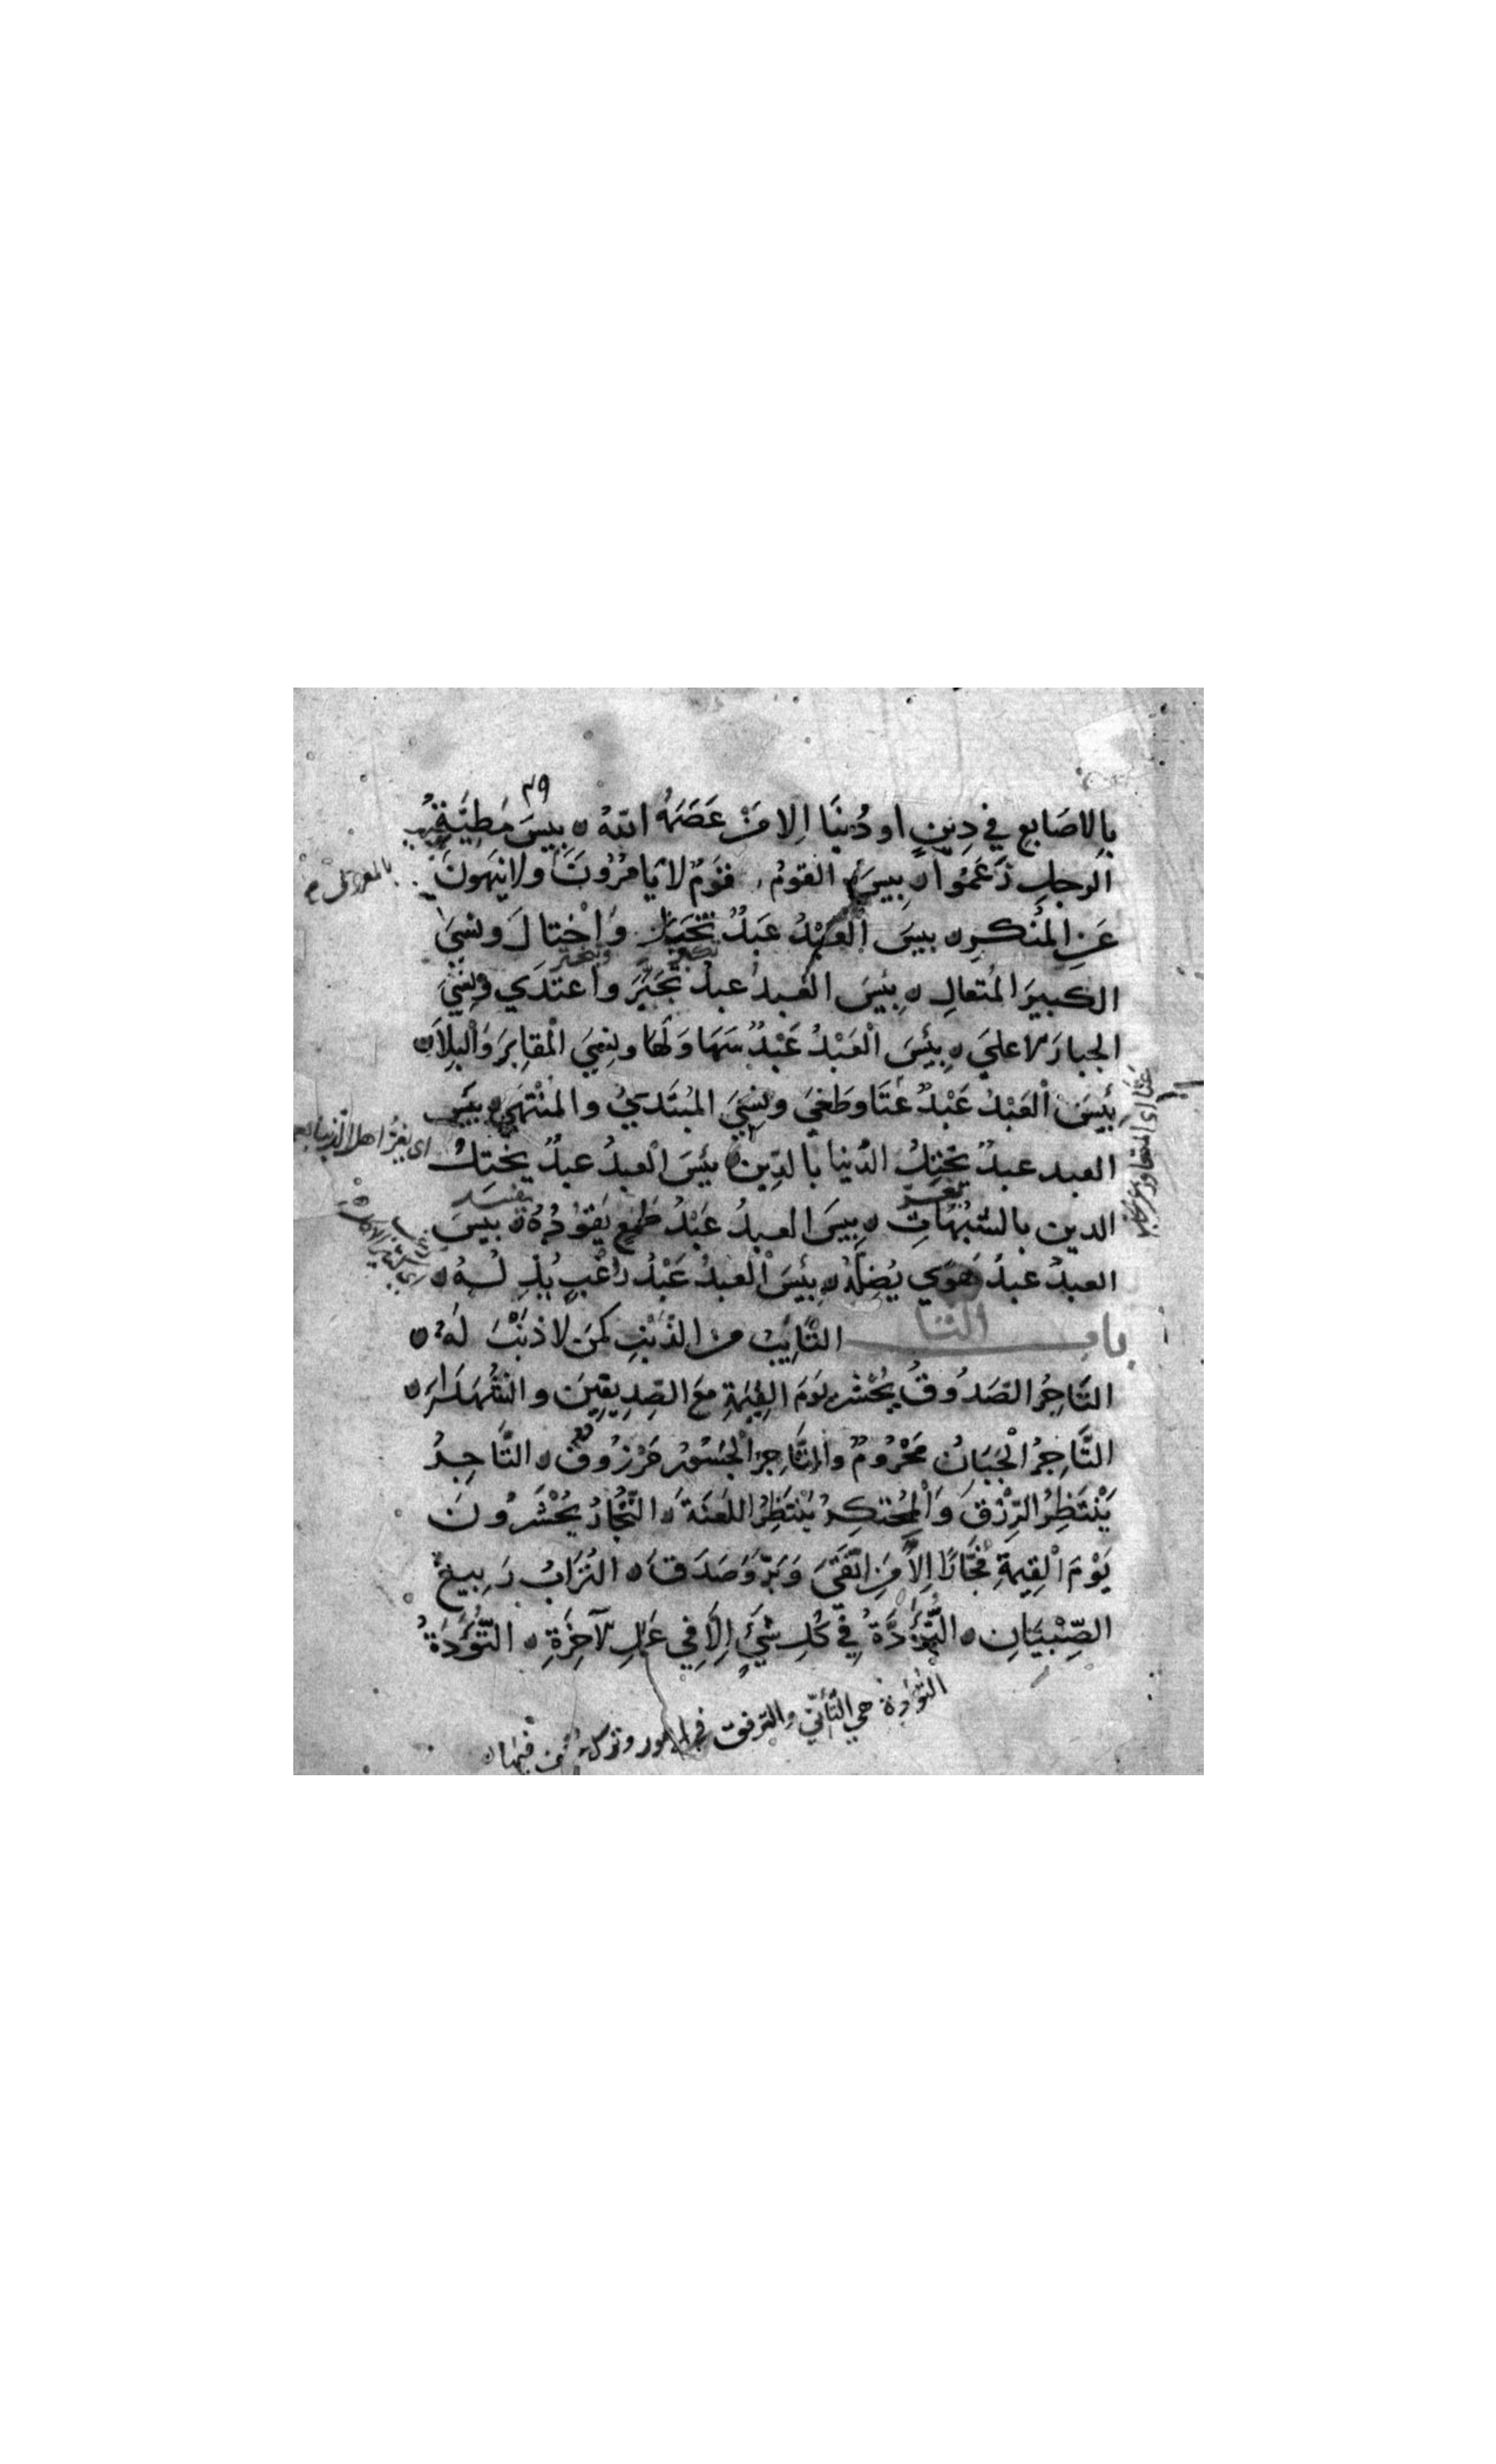 ٣٩
بِالاصَابِعِ في دِينٍ او دُنيَا اِلا مَنْ عَصَمَهُ اللهُ ه بِيسَ مَطِيَّةُ
الرجلِ زَعَمُوا ه بِيسَ القومُ قَوْمٌ لا يَامُرُونَ ولا ينهَونَ
بالمعروف
عَنِ المُنكرِ ه بيسَ العَبْدُ عَبدٌ تَخَيَّلَ وَاخْتالَ ونسِيَ
تكبر وتبختر
الكبيرَ المُتعالِ ه بِيسَ العَبدُ عبدٌ تَجَبَّرَ واعتدَي ونَسِيَ
الجبارَ الاعليَ ه بِئسَ الْعَبْدُ عَبْدٌ سَهَا وَلَهَا ونسِيَ الْمقابِرَ وَالْبِلاَ ه
بِئيسَ الْعَبْدُ عَبْدٌ عَتَا وطَغيَ ونسِيَ المُبتَديُ والمُنْتهَي ه بِئسَ
العبد عبدٌ يختِلُ الدُنيا بالدِّينِ ه بئسَ الْعبدُ عبدٌ يختلُ
اي يغرّ اهل الدنيا
الدين بالشبُهاتِ ه بِيسَ العبدُ عَبْدُ طَمَعٍ يَقوُدُهُ ه بيسَ
يفسد
العبدُ عبدُ هَوَي يُضِلُّهُ ه بِئسَ الْعبدُ عَبْدُ رُغْبٍ يُذِلُـهُ ه
باب التا التَّايِبُ من الذَنبِ كمَن لا ذَنْبَ لَهُ ه
التَّاجِرُ الصَدُوقُ يُحْشَر يَومَ القِيمَةِ معَ الصِديقِينَ والشُهَدَاءِ ه
التَّاجِرُ الْجَبَانُ مَحْرُومٌ والتَّاجِرُ الْجَسُورُ مَرْزُوقٌ ه التَّاجِرُ
يَنْتَظِرُ الرِّزْقَ وَالْمُحْتكِرُ يَنتَظِرُ اللعنَةَ ه التُّجَّارُ يُحْشَرُونَ
يَوْمَ الْقِيمَةِ فُجَّارًا اِلاَّ مَنِ اتَّقَيَ وَبَرَّ وَصَدَقَ ه التُرَابُ رَبِيعُ
الصِّبْيَانِ ه التُّؤَدَةُ فِي كُلِ شَيْءٍ اِلاَّ فِي عَمَلِ الآخِرَةِ ه التُّؤَدَةُ
التؤدة هي التَّأنّي والترفق في الامور وترك فيها ه